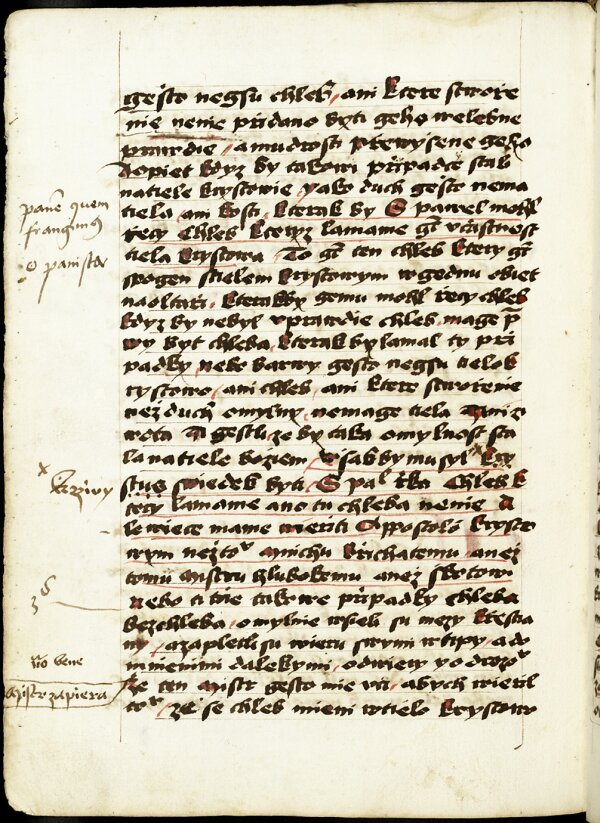 gesto negsu chleb / ani ktere stworze
nie nenie przidano byti geho welebne
prawdie / a mudrosti przewysene geho
Aopiet kdyz by takowi przipadcze stali
natiele krystowie / yako duch gesto nema
tiela / ani kosti / kterak by S pawel mohl
rzecy Chleb kteryz lamame gt vcziastnost
tiela krystowa To gt ten chleb ktery gt
spogen stielem krystowym wgednu obiet
naoltarzi / kterakby gemu mohl rzecy chleb
kdyz by nebyl vprawdie chleb / mage
wy byt chleba / kterak by lamal ty przi
padky / nebo barwy gesto negsu tielo k
rystowo / ani chleb / ani ktere stworzenie
nez duch omylny / nemage tiela Aniz
wota A gestlize by taka omylnost sta
la natiele boziem
stus swiedek byti S pal rzka Chleb k
tery lamame ano tu chleba nenie A
le wiece mame wierziti Appostolu krysto
wym nez to mnichu krzichatemu anez
tomu mistru hlubokemu anez skotowi
nebo ti tie takowe przipadky chleba
bezchleba / omylnie wsieli su mezy krzestia
ny / azapletli su wieru swymi wtipy / ado
mnienimi dalekymi / odwiery
ze ten mistr gesto mie vczi / abych wierzil
to / ze se chleb mieni wtielo krystowo
pane quem
frangimus
o panista
x krziwy
no bene
mistr zapiera